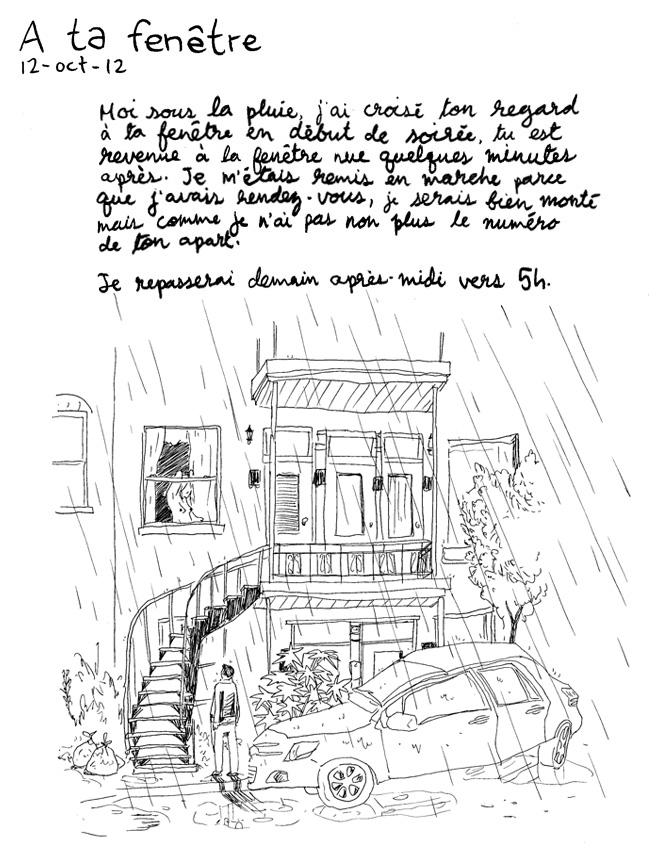 A ta fenêtre
12-oct-12
Moi sous la pluie, j'ai croisé ton regard
à ta fenêtre en début de soirée, tu est
revenue à la fenêtre nue quelques minutes
après. Je m'étais remis en marche parce
que j'avais rendez-vous, je serais bien monté
mais comme je n'ai pas non plus le numéro
de ton apart.
Je repasserai demain après-midi vers 5h.